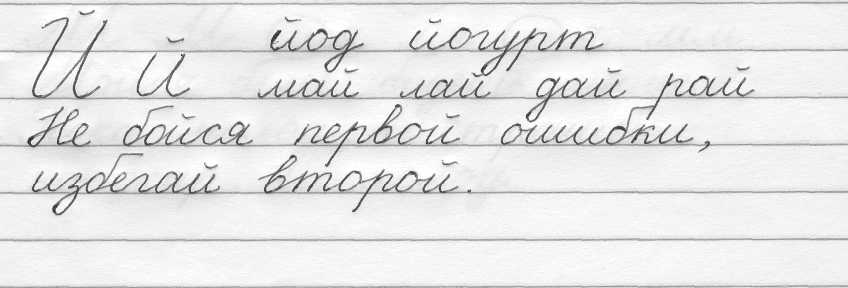 Й й йод йогурт
май лай дай рай
Не бойся первой ошибки,
избегай второй.